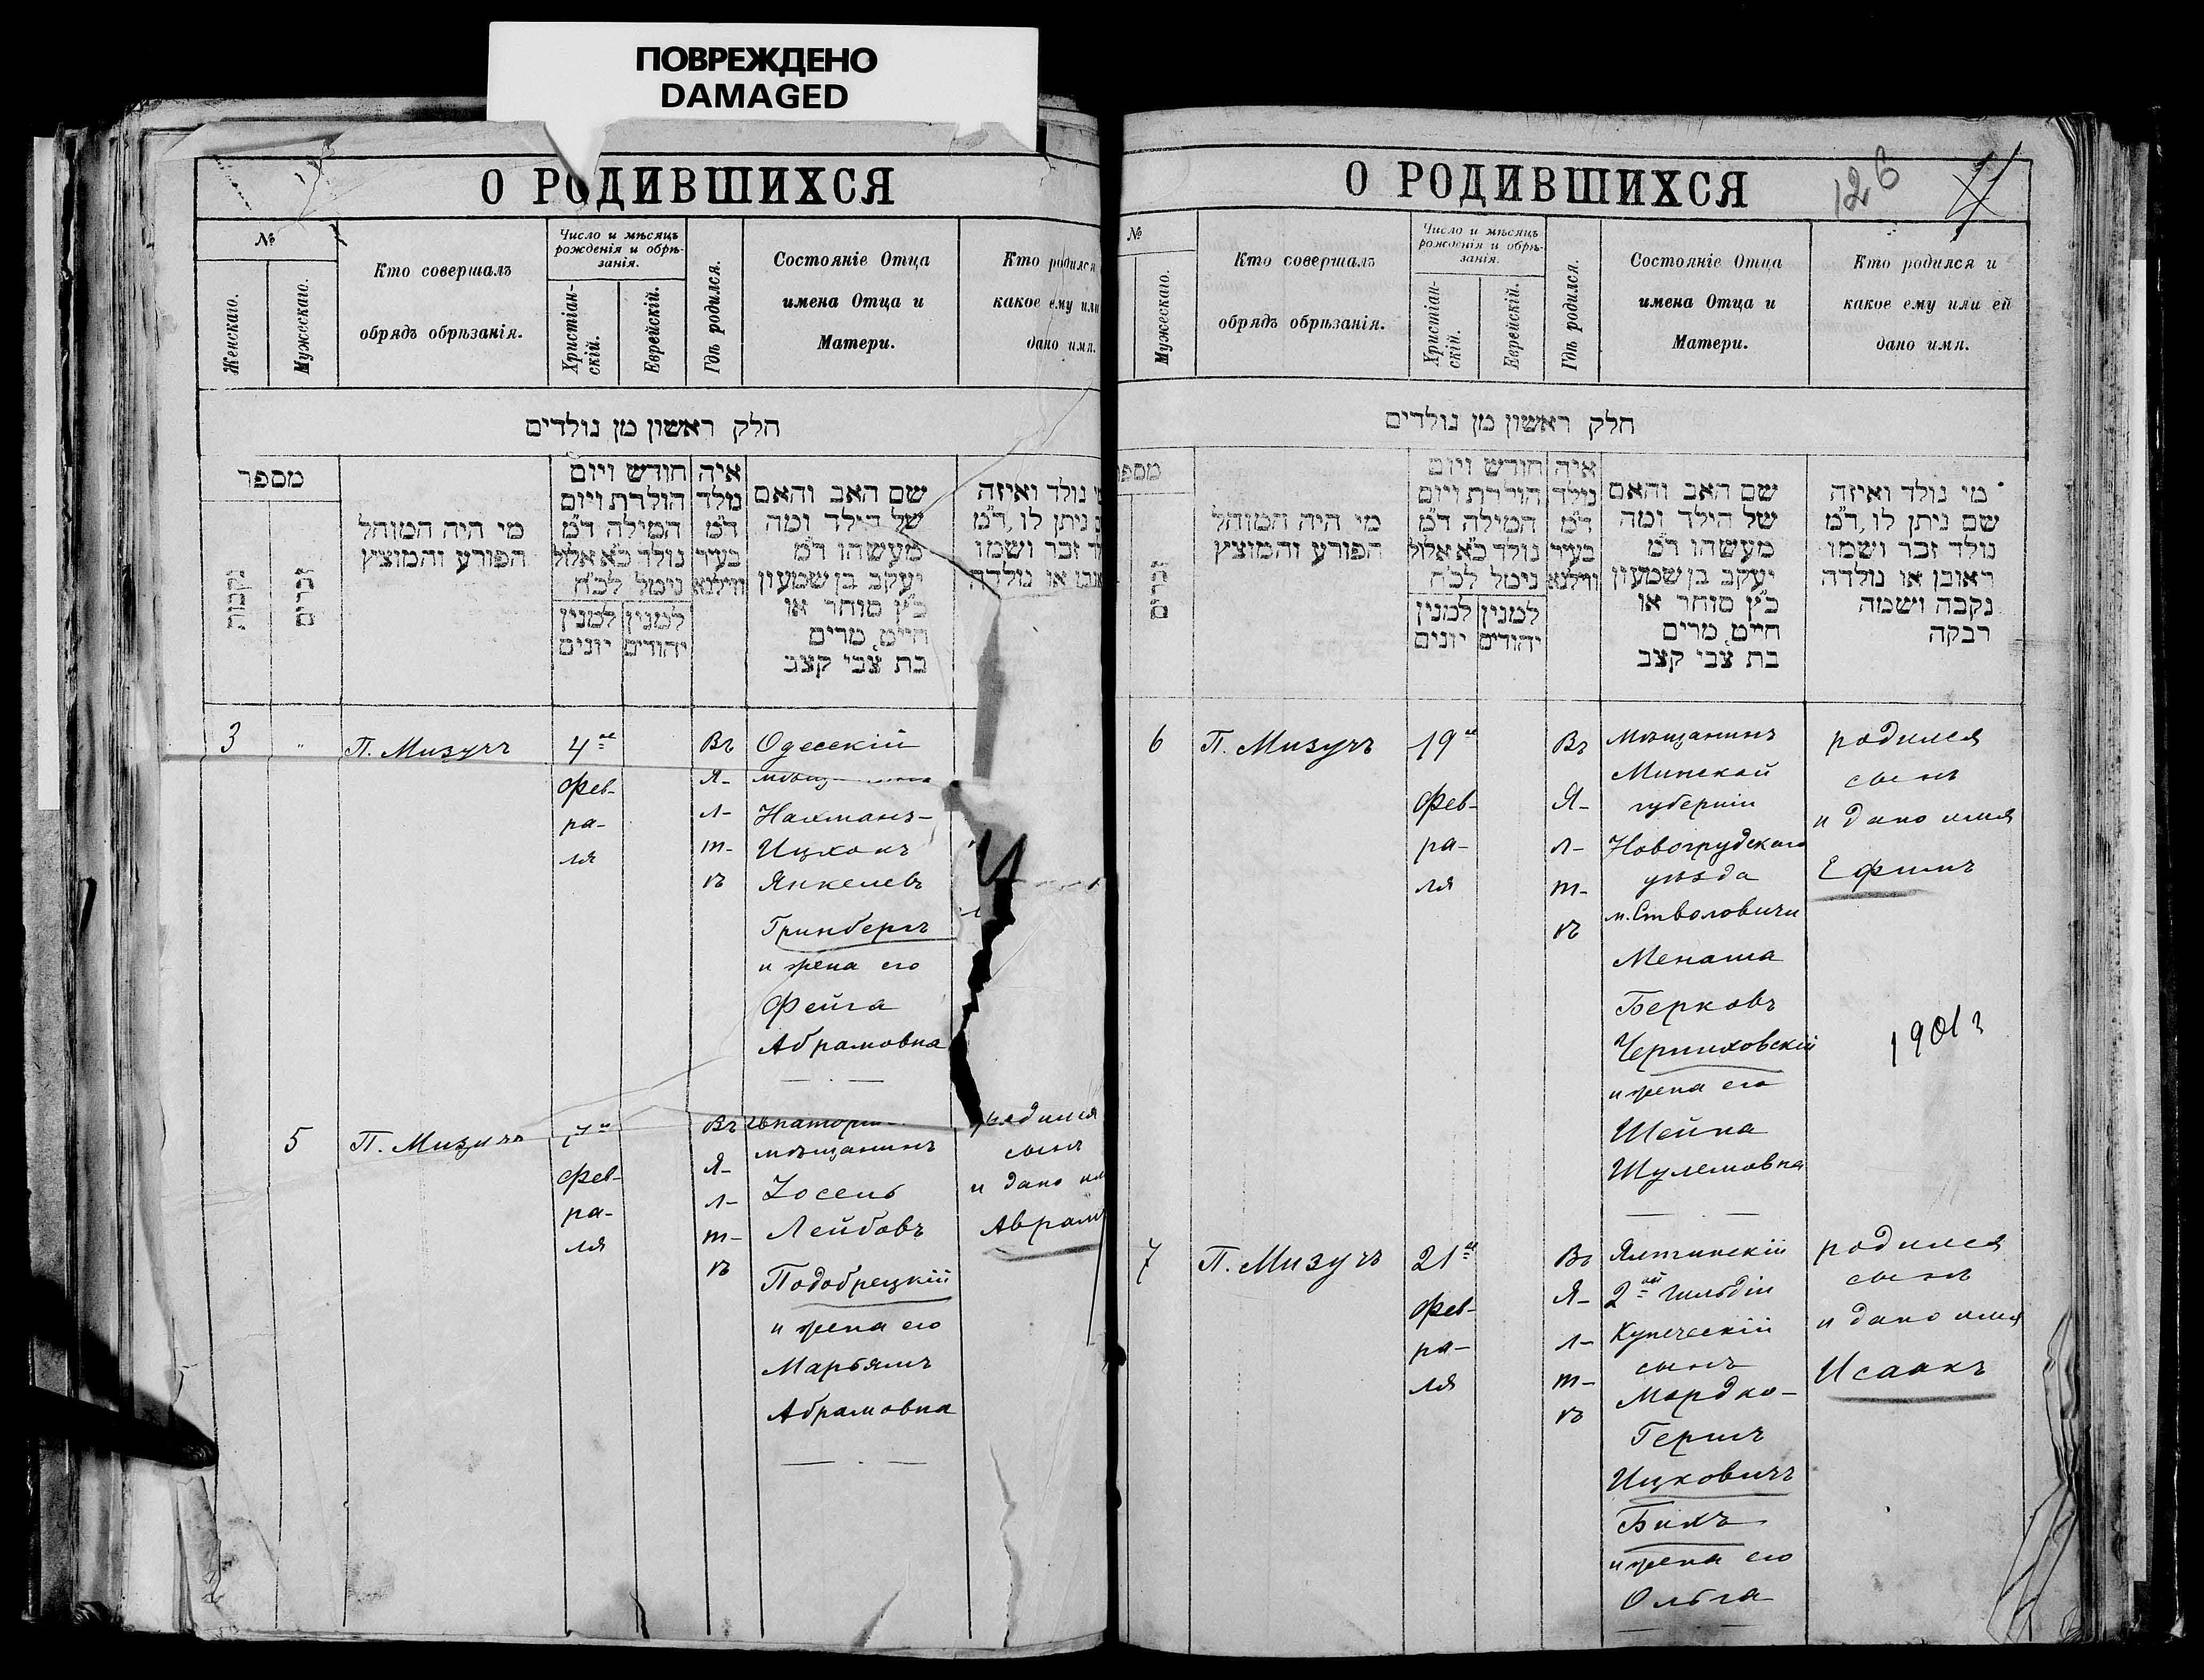 ПОВРЕЖДЕНО
DAMAGED
О РОДИВШИХСЯ
№
Женскаго.
Мужескаго.
Кто совершалъ
обрядъ обрѣзанія.
Число и мѣсяцъ
рожденія и обрѣ-
занія.
Христіан-
скій.
Еврейскій.
Гдѣ родился.
Состояніе Отца
имена Отца и
Матери.
Кто родился
какое ему или
дано имя.
חלק ראשון מן נולדים
מספר
נקבות
זכרים
מי היה המוהל
הפורע והמוצץ
חודש ויום
הולדת ויום
המילה ד״מ
נולד כ״א אלול
נימל לכ״ח
למנין
יונים
למנין
יהודים
איה
נולד
ד״מ
בעיר
ווילנא
שם האב והאם
של הילד ומה
מעשהו ד״מ
יעקב בן שמעון
כ״ץ סוחר או
חייט, מרים
בת צבי קצב
נולד ואיזה
ניתן לו, ד״מ
זכר ושמו
או נולדה
3
"
П. Мизучъ
4го
Фев-
ра-
ля
Въ
Я-
л-
т-
ѣ
Одесскій
Нахманъ-
Ицхокъ
Янкелевъ
Гринбергъ
и жена его
Фейга
Абрамовна
5
П. Мизучъ
7го
Фев-
ра-
ля
Въ
Я-
л-
т-
ѣ
мѣщанинъ
Іосель
Лейбовъ
Подобрецкій
и жена его
Марьямъ
Абрамовна
родился
сынъ
и дано им
Аврам
О РОДИВШИХСЯ
126
№
Мужескаго.
Кто совершалъ
обрядъ обрѣзанія.
Число и мѣсяцъ
рожденія и обрѣ-
занія.
Христіан-
скій.
Еврейскій.
Гдѣ родился.
Состояніе Отца
имена Отца и
Матери.
Кто родился и
какое ему или ей
дано имя.
חלק ראשון מן נולדים
מספר
זכרים
מי היה המוהל
הפורע והמוצץ
חודש ויום
הולדת ויום
המילה ד״מ
נולד כ״א אלול
נימל לכ״ח
למנין
יונים
למנין
יהודים
איה
נולד
ד״מ
בעיר
ווילנא
שם האב והאם
של הילד ומה
מעשהו ד״מ
יעקב בן שמעון
כ״ץ סוחר או
חייט, מרים
בת צבי קצב
מי נולד ואיזה
שם ניתן לו, ד״מ
נולד זכר ושמו
ראובן או נולדה
נקבה ושמה
רבקה
6
П. Мизучъ
19го
Фев-
ра-
ля
Въ
Я-
л-
т-
ѣ
Мѣщанинъ
Минской
губерніи
Новогрудскаго
уѣзда
м. Стволовичи
Менаша
Берковъ
Черниховскій
и жена его
Шейна
Шулемовна
родился
сынъ
и дано имя
Ефимъ
1901г
7
П. Мизучъ
21го
Фев-
ра-
ля
Въ
Я-
л-
т-
ѣ
Ялтинскій
2ой гильдіи
Купеческій
сынъ
Мордко-
Гершъ
Ицковичъ
Бикъ
и жена его
Ольга
родился
сынъ
и дано имя
Исаакъ